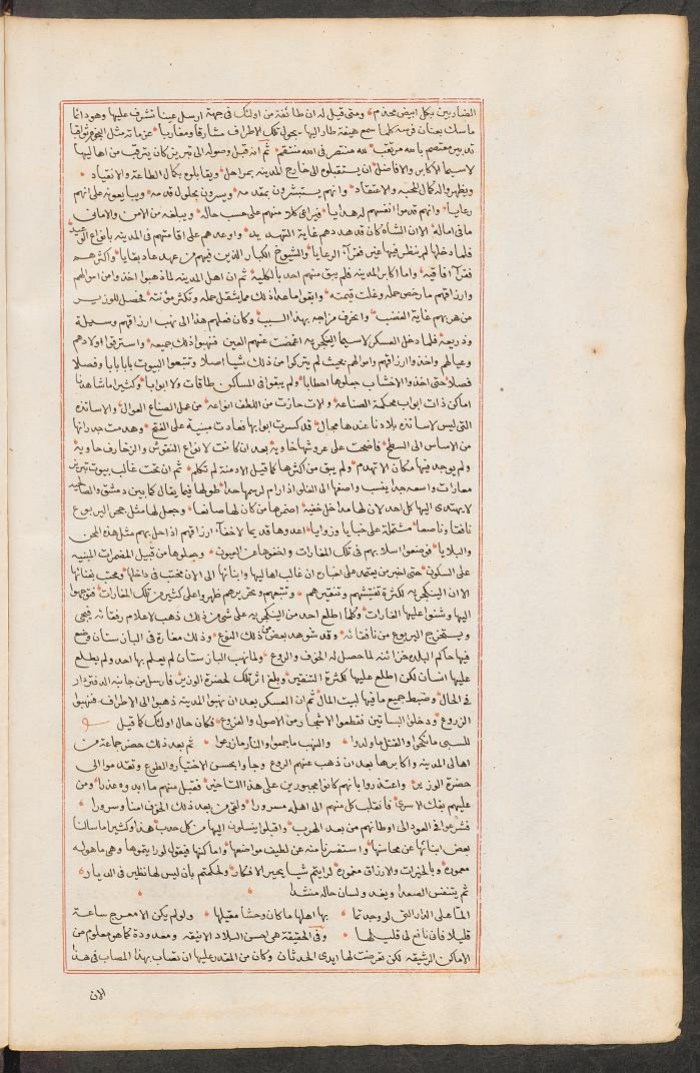 الضاربين بكل ابيض مخذم ومتى قيل له ان طائفة من اولئك في جهة ارسل عينا تشرف عليها وهو دائما
ماسك بعنان فرسه كلما سمع هيفة طار اليها يحول تلك الاطراف مشارقا ومغاربا عزماته مثل النجوم ثواقبا
تدبير معتصم بالله مرتقب لله منتصر في الله منتقم ثم انه قبل وصوله الى تبريز كان يترقب من اهاليها
لاسيما الاكابر والافاضل ان يستقبلوه الى خارج المدينه بمراحل ويقابلوه بكمال الطاعة والانقياد
ويظهروا له كمال المحبه والاعتقاد وانهم يستبشرون بمقدمه ويسرون بحلول قدمه ويبايعونه على انهم
رعايا وانهم قدموا انفسهم له هدايا فيراعى كلا منهم على حسب حاله ويبلغه من الامن والامانى
ما فى اماله الا ان الشاه كان قد هددهم غاية التهديد واوعدهم على اقامتهم فى المدينه بانواع الوعيد
فلما دخلها لم ينظر فيها غير فقرآء الرعايا والشيوخ الكبار الذين فيهم من عهد عاد بقايا واكثرهم
فقرآء افاقيه واما اكابر المدينه فلم يبق منهم احد بالكلية ثم ان اهل المدينه لما ذهبوا اخذوا من اموالهم
وارزاقهم ما رخص حمله وغلت قيمته وابقوا ماعدا ذلك مما يثقل حمله وتكثر مؤنته فحصل للوزير
من هربهم غاية الغضب وانحرف مزاجه بهذا السبب وكان فعلهم هذا الى نهب ارزاقهم وسيلة
وذريعة فلما دخل العسكر لاسيما الينكجريه اغمضت عنهم العين فنهبوا ذلك جميعه واسترقوا اولادهم
وعيالهم واخذوا ارزاقهم واموالهم بحيث لم يتركوا من ذلك شيا اصلا وتتبعوا البيوت بابا بابا وفصلا
فصلا حتى اخذوا الاخشاب جعلوها احطابا ولم يبقوا فى المساكن طاقات ولا ابوابا وكثيرا ما شاهدنا
اماكن ذات ابواب محكمة الصناعه ولات حازت من اللطف انواعه من عمل الصناع العوال والاساتده
التى ليس لاساتذة بلادنا عندها مجال قد كسرت ابوابها فغادت مبنية على الفتح وهدمت جدرانها
من الاساس الى السطح فاضحت على عروشها خاوية بعد ان كانت لانواع النقوش والزخارف حاوية
ولم يوجد فيها مكان الا تهدم ولم يبق من اكثرها كما قيل الا دمنة لم تكلم ثم ان تحت غالب بيوت تبريز
مغارات واسعه جدا ينسب واصفها الى الغلو اذا رام لرسمها حدا طولها فيما يقال كما بين دمشق والصالحيه
لا يهتدى اليها كل احد لان لها مداخل خفيه اضمرها من كان لها صانعا وجعل لها مثل جحر اليربوع
نافقا وناصعا مشتملة على خبايا وزوايا اعدوها قديما لاخفآء ارزاقهم اذا حل بهم مثل هذه المحن
والبلايا فوضعوا اسلابهم فى تلك المغارات واخفوها عن العيون وجعلوها من قبيل المضمرات المبنيه
على السكون حتى اخبر من يعتمد على اخباره ان غالب اهاليها وابنائها الى الان مختبئ فى داخلها ومحتجب بفنائها
الا ان الينكجريه لكثرة تفتيشهم وتنقيرهم وتتبعهم وتحريرهم ظهروا على كثير من تلك المغارات فتوجهوا
اليها وشنوا عليها الغارات وكلما اطلع احد من الينكجريه على شى من ذلك ذهب لاعلام رفقائه فيجى
ويستخرج اليربوع من نافقائه وقد شوهد بعض من ذلك النوع وذلك مغارة فى البازستان وضع
فيها حاكم البلده خزائنه لما حصل له الخوف والروع ولما نهب البازستان لم يعلم بها احد ولم يطلع
عليها انسان لكن اطلع عليها لكثرة التنقير وبلغ اثر تلك لحضرة الوزير فارسل من جانبه الدفتردار
فى الحال وضبط جميع ما فيها لبيت المال ثم ان العسكر بعد ان نهبوا المدينه ذهبوا الى الاطراف فنهبوا
الزروع ودخلوا البساتين فقطعوا الاشجار من الاصول والفروع فكان حال اولئك كما قيل
للسبى ما نكحوا والقتل ما ولدوا والنهب ما جمعوا والنار ما زرعوا ثم بعد ذلك حضر جماعة من
اهالى المدينه واكابرها بعد ان ذهب عنهم الروع وجاوا بحسن الاختيار والطوع وتقدموا الى
حضرة الوزير واعتذروا بانهم كانوا مجبورين على هذا التاخير فقبل منهم ما ابدوه عذرا ومن
عليهم بفك الاسرى فانقلب كل منهم الى اهله مسرورا ولقى من بعد ذلك الخوف امنا وسرورا
فشرعوا فى العود الى اوطانهم من بعد الهرب واقبلوا ينسلون اليها من كل حدب هذا وكثيرا ما سالنا
بعض ابنائها عن محاسنها واستفسرنا منه عن لطيف مواضعها واماكنها فيقول لو رايتموها وهى ماهوله
معموره وبالخيرات والارزاق مغموره لرايتم شيا يحير الافكار ولحكمتم بان ليس لها نظير فى الديار
ثم يتنفس الصعدا وينشد ولسان حاله منشدا
الما على الدار التى لو وجدتما بها اهلها ما كان وحشا مقيلها ولو لم يكن الا معرج ساعة
قليلا فانى نافع لى قليلها وفى الحقيقة هى احسن البلاد الانيقه ومعدودة كما هو معلوم من
الاماكن الرشيقه لكن تعرضت لها ايدى الحدثان وكان من المقدر عليها ان تصاب بهذا المصاب فى هذا
الان